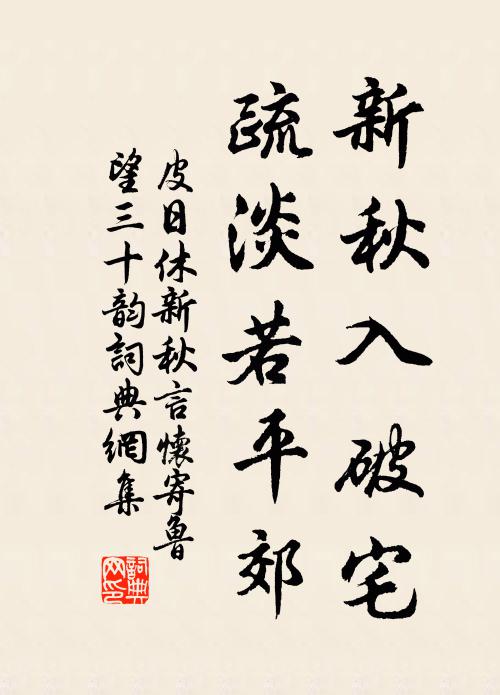 新秋入破宅
疏淡若平郊
皮日休新秋言懷寄魯
望三十韵詞典網集
詞典网印